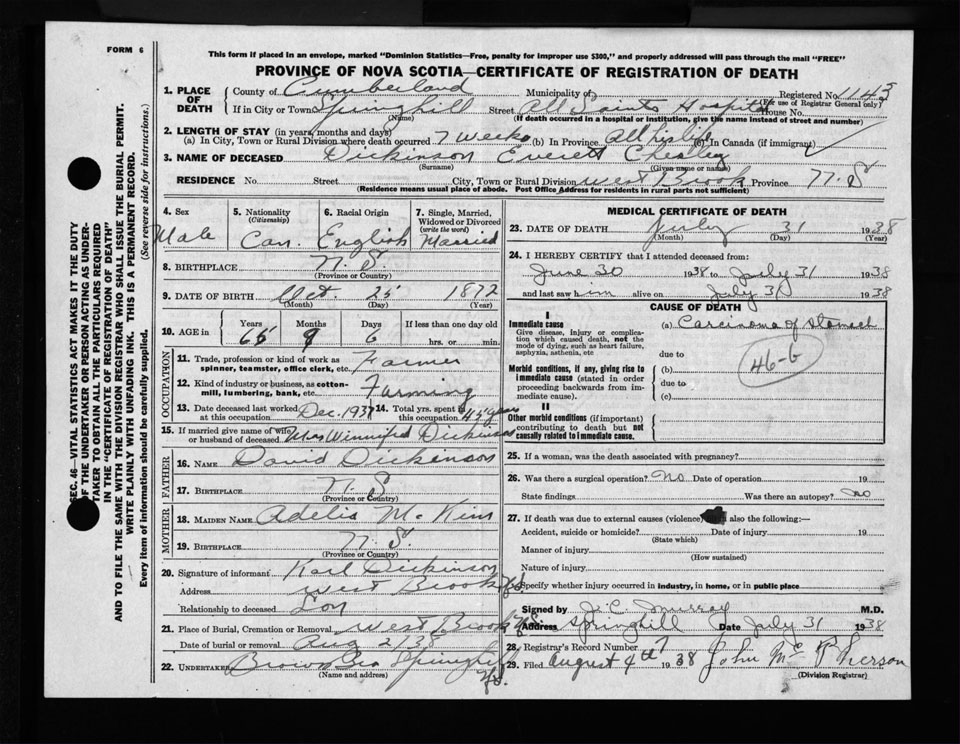 FORM 6
This form if placed in an envelope, marked "Dominion Statistics—Free, penalty for improper use $300," and properly addressed will pass through the mail "FREE"
PROVINCE OF NOVA SCOTIA—CERTIFICATE OF REGISTRATION OF DEATH
SEC. 46—VITAL STATISTICS ACT MAKES IT THE DUTY
OF THE UNDERTAKER OR PERSON ACTING AS UNDER-
TAKER TO OBTAIN ALL THE PARTICULARS REQUIRED
IN THE "CERTIFICATE OF REGISTRATION OF DEATH"
AND TO FILE THE SAME WITH THE DIVISION REGISTRAR WHO SHALL ISSUE THE BURIAL PERMIT.
WRITE PLAINLY WITH UNFADING INK. THIS IS A PERMANENT RECORD.
Every item of information should be carefully supplied. (See reverse side for instructions.)
1. PLACE OF DEATH
County of Cumberland Municipality of Registered No. 1143
(For use of Registrar General only)
If in City or Town Springhill Street All Saints Hospital House No.
(Name) (If death occurred in a hospital or institution, give the name instead of street and number)
2. LENGTH OF STAY (in years, months and days)
(a) In City, Town or Rural Division where death occurred 7 weeks (b) In Province All his life (c) In Canada (if immigrant)
3. NAME OF DECEASED Dickinson Everett Chesley
(Surname) (Given name or names)
RESIDENCE No. Street City, Town or Rural Division West Brook Province N. S
(Residence means usual place of abode. Post Office Address for residents in rural parts not sufficient)
4. Sex Male
5. Nationality (Citizenship) Can.
6. Racial Origin English
7. Single, Married, Widowed or Divorced (write the word) Married
8. BIRTHPLACE N. S.
(Province or Country)
9. DATE OF BIRTH Oct. 25 1872
(Month) (Day) (Year)
10. AGE in Years Months Days If less than one day old
65 9 6 hrs. or min.
OCCUPATION
11. Trade, profession or kind of work as spinner, teamster, office clerk, etc. Farmer
12. Kind of industry or business, as cotton-mill, lumbering, bank, etc. Farming
13. Date deceased last worked at this occupation Dec. 1937 14. Total yrs. spent in this occupation 45 years
15. If married give name of wife or husband of deceased Mrs Winnifred Dickinson
FATHER
16. NAME David Dickinson
17. BIRTHPLACE N. S.
(Province or Country)
MOTHER
18. MAIDEN NAME Adelia McKim
19. BIRTHPLACE N. S.
(Province or Country)
20. Signature of informant Karl Dickinson
Address West Brook N.S.
Relationship to deceased Son
21. Place of Burial, Cremation or Removal West Brook N.S.
Date of burial or removal Aug 2/38
22. UNDERTAKER Brown Bro Springhill N.S.
(Name and address)
MEDICAL CERTIFICATE OF DEATH
23. DATE OF DEATH July 31 1938
(Month) (Day) (Year)
24. I HEREBY CERTIFY that I attended deceased from:
June 20 1938 to July 31 1938
and last saw him alive on July 31 1938
CAUSE OF DEATH
I
Immediate cause
Give disease, injury or complication which caused death, not the mode of dying, such as heart failure, asphyxia, asthenia, etc
(a) Carcinoma of Stomach
due to
46-b
Morbid conditions, if any, giving rise to immediate cause (stated in order proceeding backwards from immediate cause).
(b)
due to
(c)
II
Other morbid conditions (if important) contributing to death but not causally related to immediate cause.
25. If a woman, was the death associated with pregnancy?
26. Was there a surgical operation? No Date of operation 19
State findings Was there an autopsy? no
27. If death was due to external causes (violence) also the following:—
Accident, suicide or homicide? Date of injury 19
(State which)
Manner of injury
(How sustained)
Nature of injury
Specify whether injury occurred in industry, in home, or in public place
Signed by J. C. Murray M.D.
Address Springhill Date July 31 1938
28. Registrar's Record Number 7
29. Filed August 4th 1938 John McPherson
(Division Registrar)